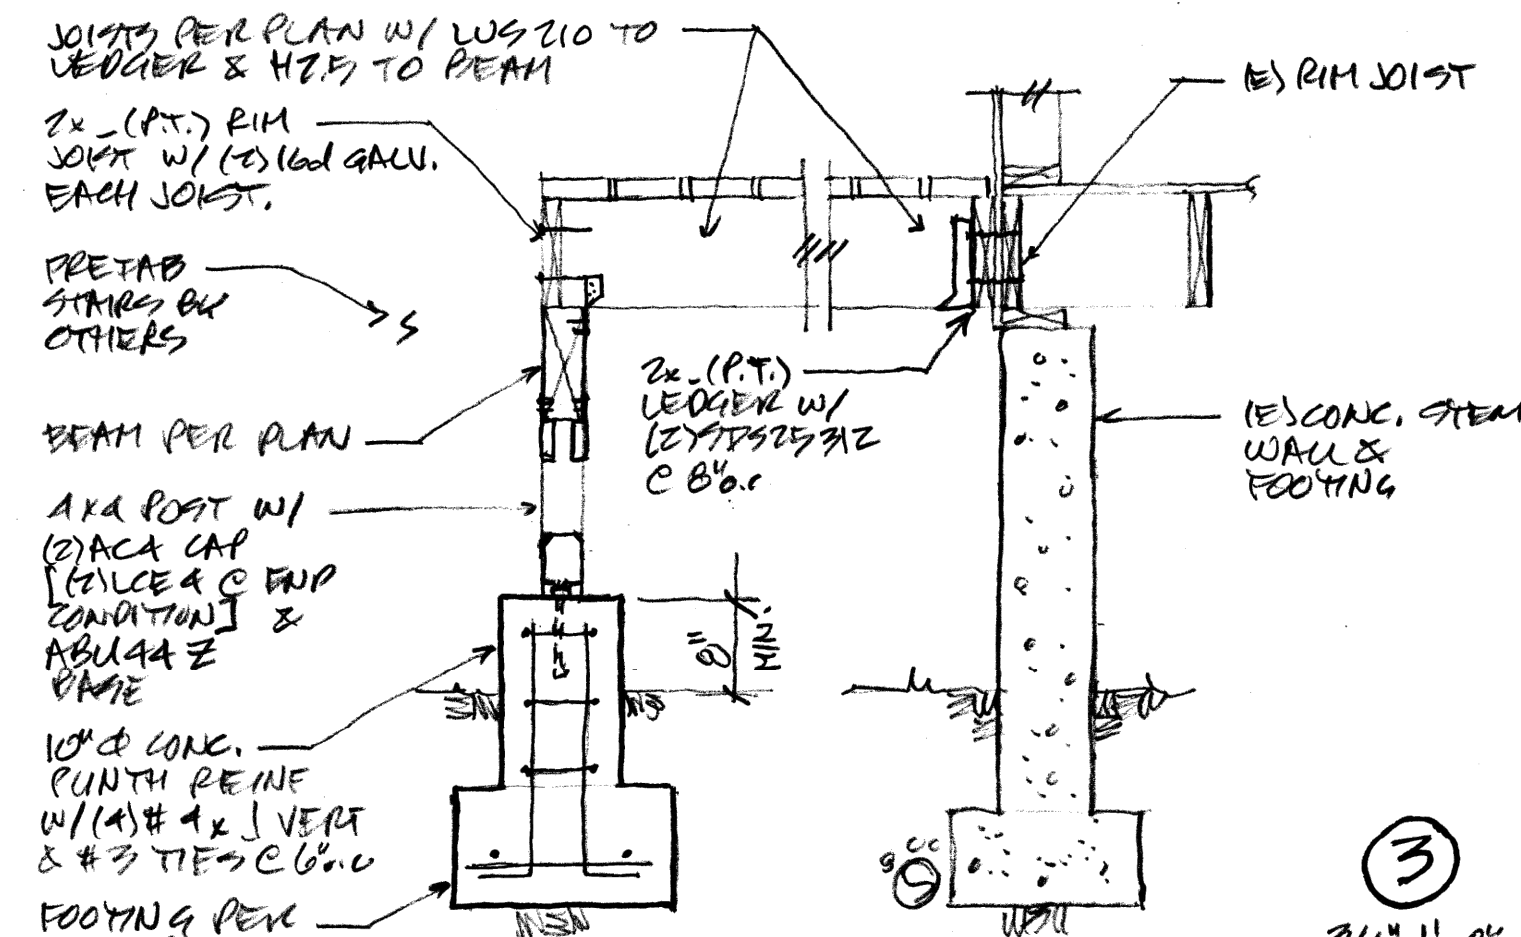 JOISTS PER PLAN W/ LUS210 TO
LEDGER & H2.5 TO BEAM
2x_(P.T.) RIM
JOIST W/ (2) 16d GALV.
EACH JOIST.
PREFAB
STAIRS BY
OTHERS
BEAM PER PLAN
4x4 POST W/
(2)AC4 CAP
[(2)LCE4 @ END
CONDITION] &
ABU44Z
BASE
10"Φ CONC.
PLINTH REINF
W/(4)#4x J VERT
& #3 TIES @ 6"o.c
FOOTING PER
2x_(P.T.)
LEDGER W/
(2)SDS25312
@ 8"o.c
8"
MIN.
(E) RIM JOIST
(E)CONC. STEM
WALL &
FOOTING
3